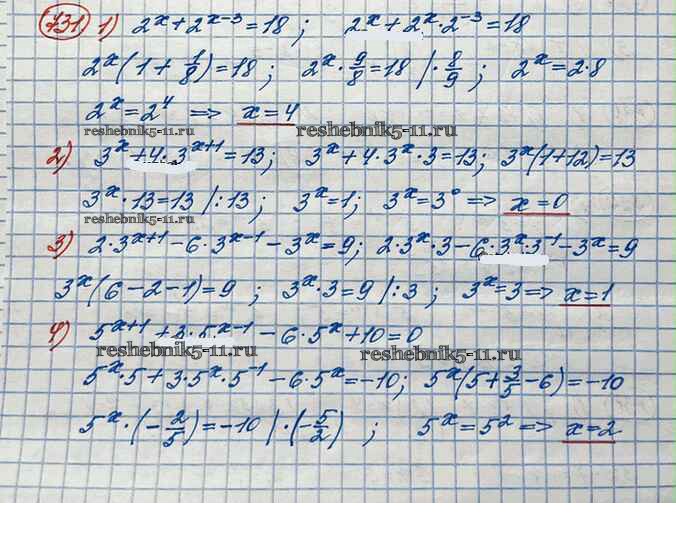 731) 1) 2^x + 2^(x-3) = 18 ; 2^x + 2^x · 2^(-3) = 18
2^x (1 + 1/8) = 18 ; 2^x · 9/8 = 18 | · 8/9 ; 2^x = 2·8
2^x = 2^4 => x = 4
reshebnik5-11.ru reshebnik5-11.ru
2) 3^x + 4 · 3^(x+1) = 13; 3^x + 4 · 3^x · 3 = 13; 3^x (1+12) = 13
3^x · 13 = 13 | : 13 ; 3^x = 1; 3^x = 3^0 => x = 0
reshebnik5-11.ru
3) 2·3^(x+1) - 6·3^(x-1) - 3^x = 9; 2·3^x·3 - 6·3^x·3^(-1) - 3^x = 9
3^x (6 - 2 - 1) = 9 ; 3^x · 3 = 9 | : 3 ; 3^x = 3 => x = 1
4) 5^(x+1) + 3·5^(x-1) - 6·5^x + 10 = 0
reshebnik5-11.ru reshebnik5-11.ru
5^x · 5 + 3·5^x · 5^(-1) - 6·5^x = -10; 5^x (5 + 3/5 - 6) = -10
5^x · (-2/5) = -10 | · (-5/2) ; 5^x = 5^2 => x = 2